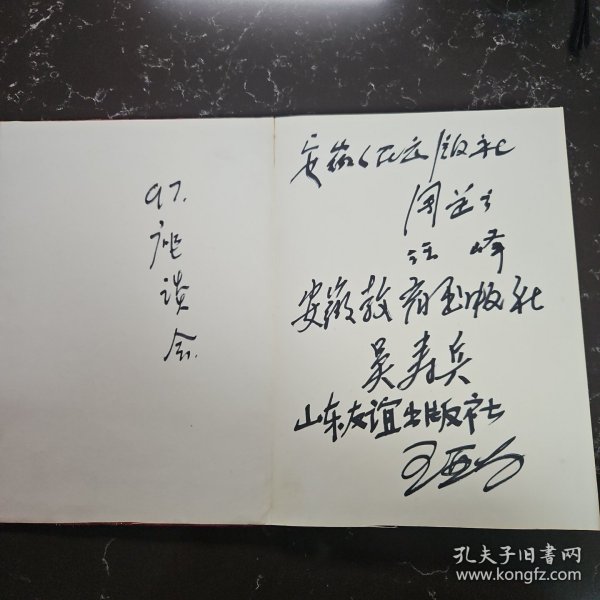 97.
座谈会.
安徽人民出版社
周
汪 峰
安徽教育出版社
吴寿兵
山东友谊出版社
王亚
孔夫子旧书网
www.kongfz.com